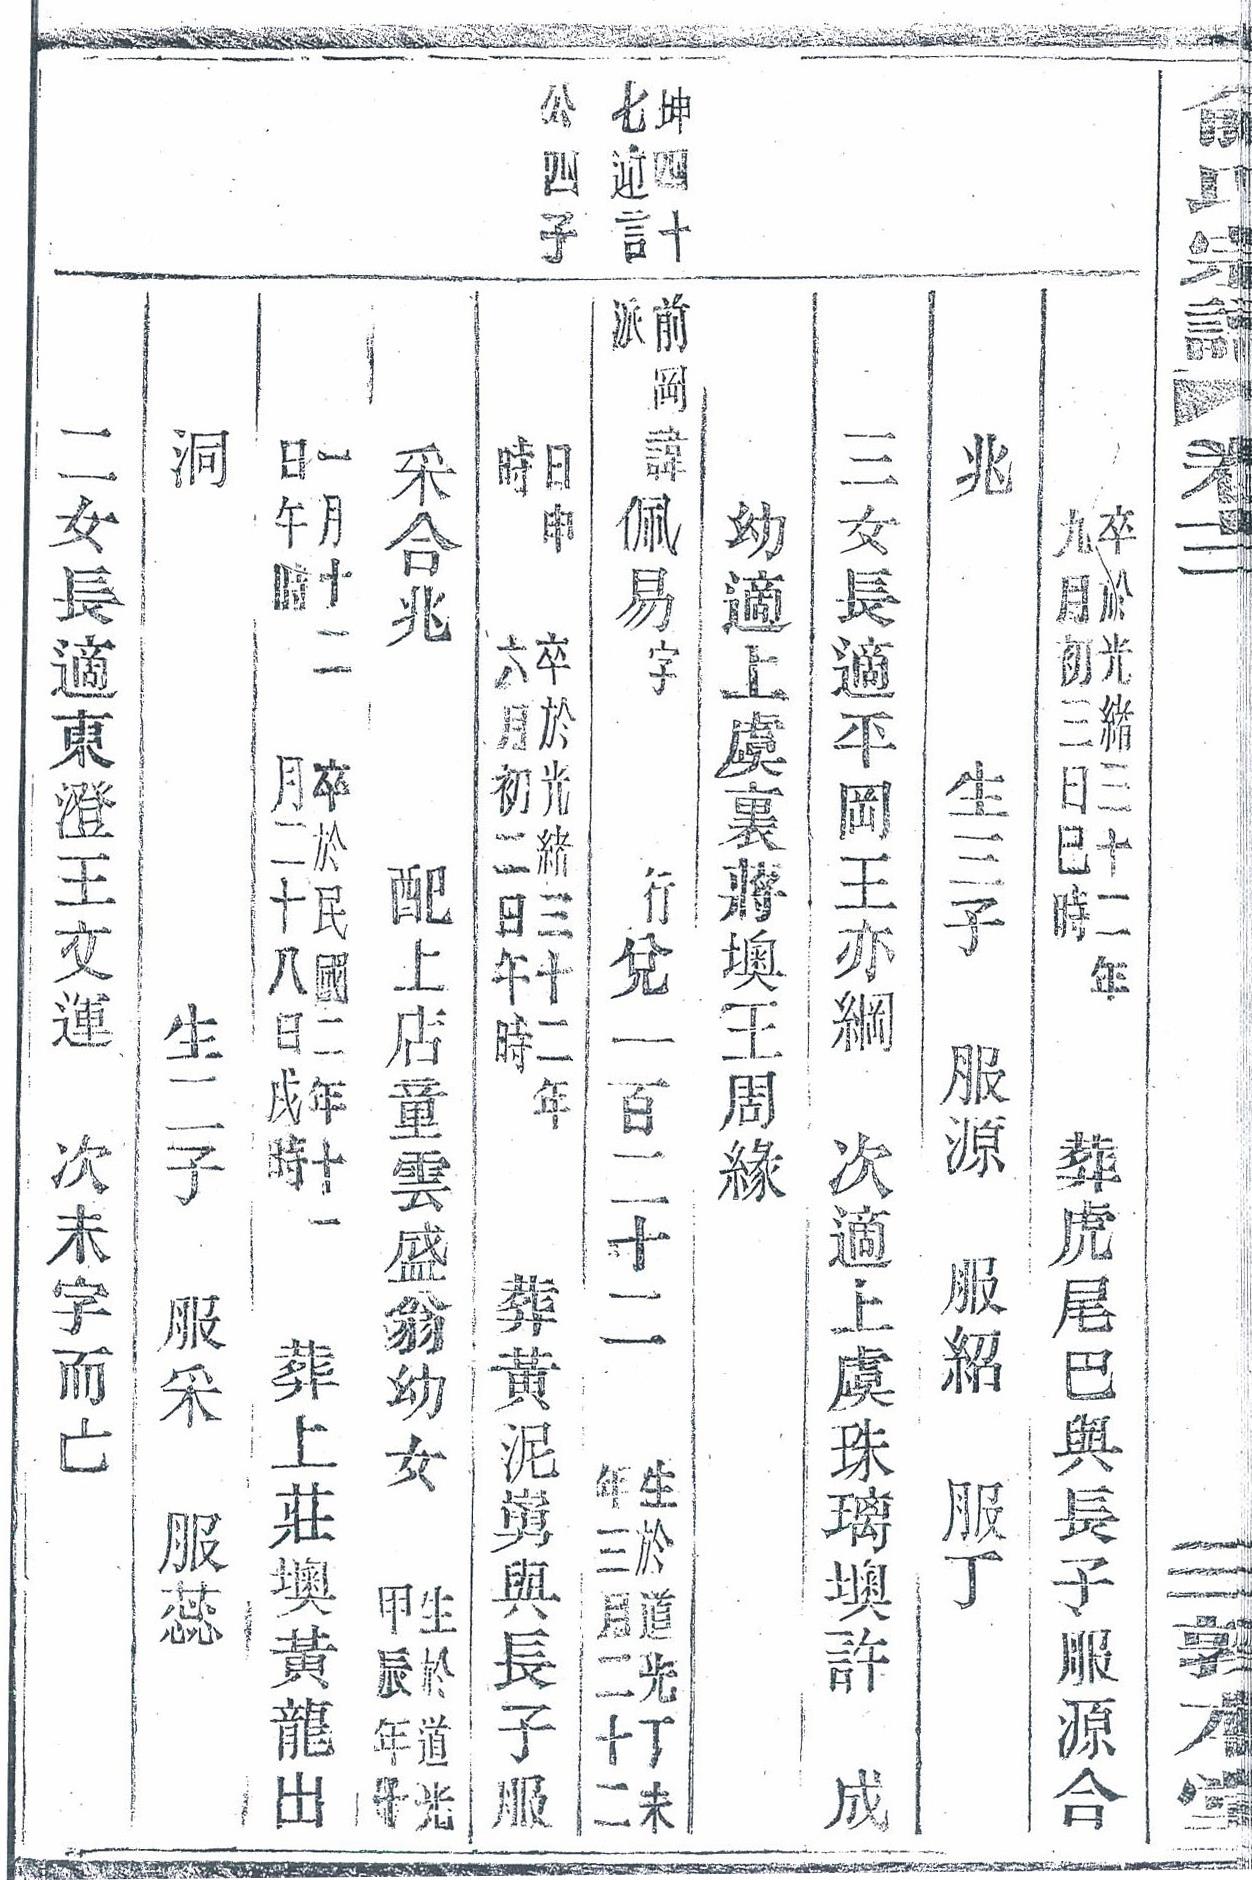 俞氏宗譜 卷三 三 敦本堂
卒於光緒三十二年
九月初三日巳時
葬虎尾巴與長子服源合
兆 生三子 服源 服紹 服丁
三女長適平岡王亦綱 次適上虞珠璃墺許 成
幼適上虞裏蔣墺王周緣
坤四十
七 言
公四子
前岡諱
派
佩易字 行兌一百二十二
生於道光丁未
年三月二十二
日申
時
卒於光緒三十二年
六月初二日午時
葬黃泥 與長子服
采合兆 配上店童雲盛翁幼女
生於道光
甲辰年十
一月十二
日午時
卒於民國二年十一
月二十八日戌時
葬上莊墺黃龍出
洞 生二子 服采 服蕊
二女長適東澄王文運 次未字而亡